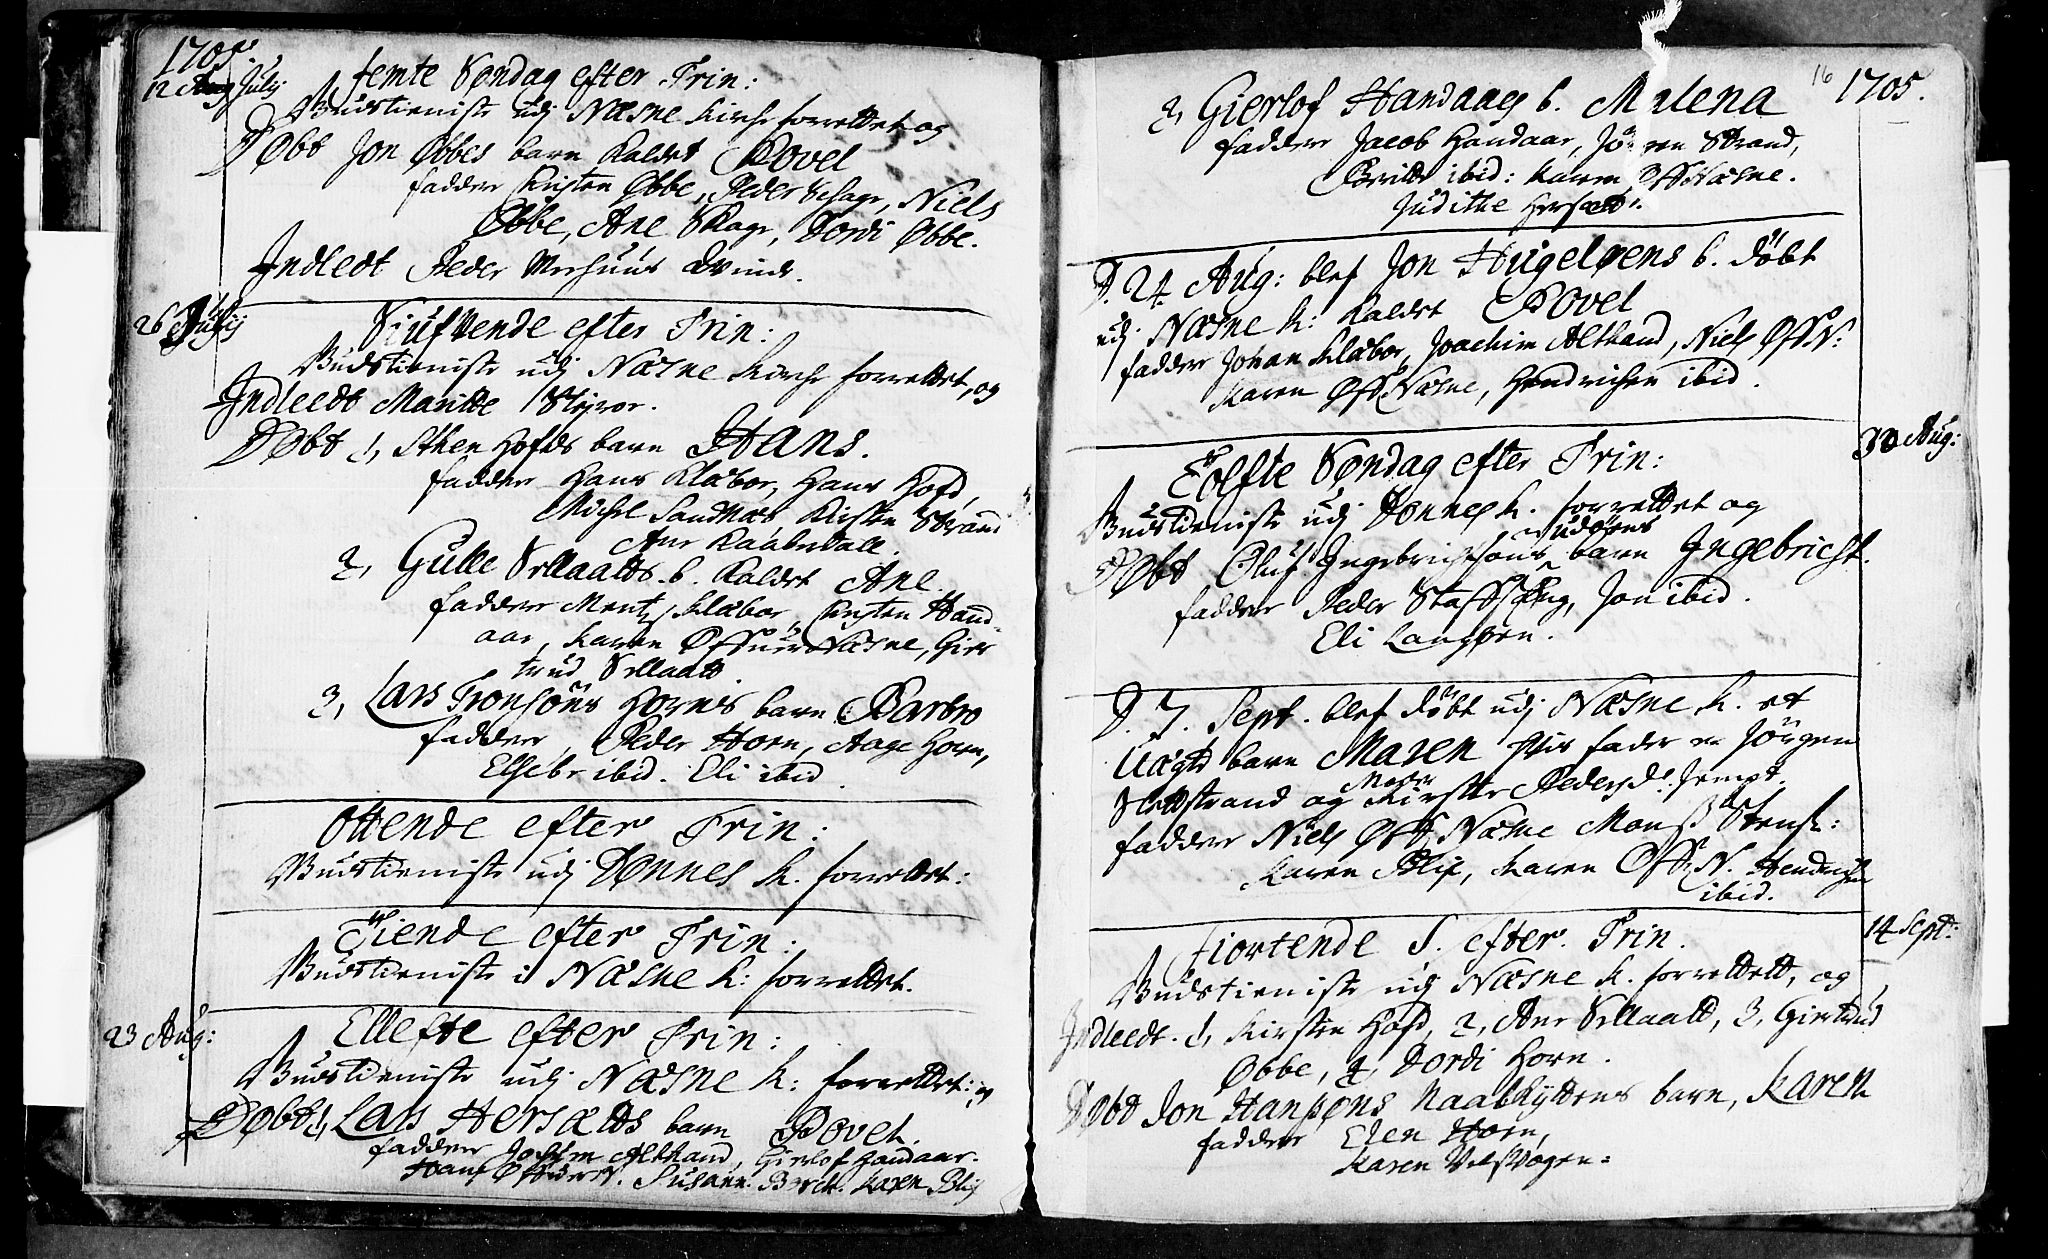 1705.
12 July
femte Søndag efter Trin:
Gudstieniste udj Næsne Kirche forrettet og
Døbt Jon Øbbes barn kaldet Povel
fadder Kirsten Øbbe, Peder Schage, Niels
Øbbe, Ane Skage, Dordi Øbbe.
Indledt Peder Mehuus Qvinde.
26 July
Siufvende efter Trin:
Gudstieniste udj Næsne Kirche forrettet, og
Indleedt Maritte
Døbt 1, Sthen Hofds barn Hans.
fadder Hans Klæboe, Hans Hofd,
Michel Sandnæs, Kirsten Strand
Ane Kaabesdall.
2, Gulle Sellaalds b. kaldet Ane.
fadder Mentz Klæboe, Kirsten Hand-
aar, Karen Offuer Næsne, Gier
trud Sellaald.
3, Lars Tronsöns Horns barn Barbro
fadder, Peder Horn, Aage Horn,
Elsebe ibid. Eli ibid
Ottende efter Trin:
Gudstieniste udj Dønnes K. forrettet:
Tiende efter Trin:
Gudstieniste i Næsne K: forrettet.
23 Aug:
Ellefte efter Trin:
Gudstieniste udj Næsne K: forrettet: og
Døbt 1, Lars Hersætts barn Povel.
fadder Jochim Althand, Gierlof Handaar.
Hans Offuer N. Susanne Borch. Karen Blix
16 1705.
2, Gierlof Handaars b. Malena
fadder Jacob Handaar, Jörgen Strand,
ibid: Karen Off Næsne.
Judithe Hersætt.
D. 24 Aug: blef Jon Hugeløens b. döbt
udj Næsne K: kaldet Povel
fadder Johan Klæboe, Joachim Althand, Niels Off N:
Karen Off Næsne, Hendrichen ibid.
30 Aug:
Tolfte Søndag efter Trin:
Gudstieniste udj Dønnes K. forrettet og
Døbt Oluf Ingebrichtsöns barn Ingebricht.
fadder Peder Jon ibid.
Eli
D. 7. Sept. blef döbt udj Næsne K. et
Uægte barn Maren hvis fader er Jörgen
Slettstrand og Moder Kirsten Pedersd:
fadder Niels Off Næsne Monss
Karen Blix, Karen Off N. Hendrichen
ibid.
14 Sept:
Fiortende S. efter Trin.
Gudstieniste udj Næsne K. forrettett, og
Indleedt. 1, Kirsten Hofd, 2, Ane Sellaald, 3, Giertrud
Øbbe, 4, Dordi Horn.
Døbt Jon Hanssøns barn, Karen
fadder Elen Horn,
Karen